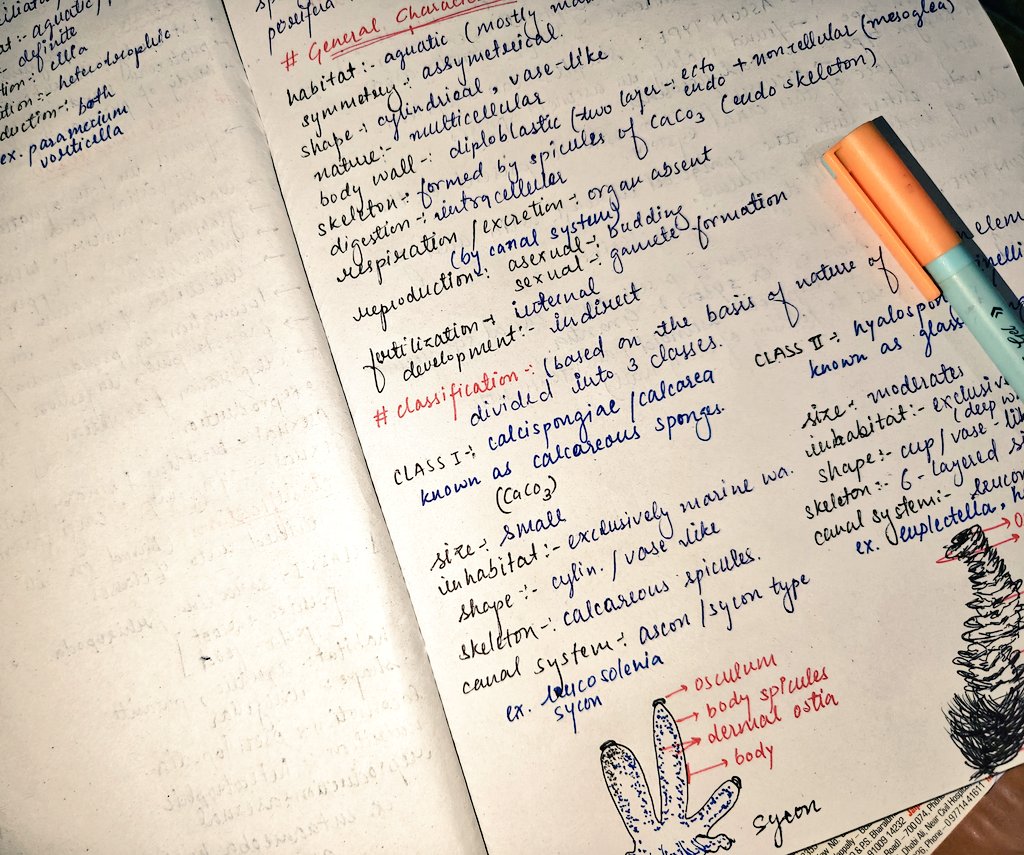 at:- aquatic/
definite
tion: cilia
ition:- heterotrophic
duction: both
ex. paramecium
vorticella
porifera
# General Charact
habitat:- aquatic (mostly ma
symmetry:- assymetrical.
shape:- cylindrical, vase-like
nature:- multicellular
body wall:- diploblastic (two layer:- ecto endo + non-cellular (mesoglea)
skeleton:- formed by spicules of CaCO3 (endo skeleton)
digestion:- intracellular
respiration/excretion:- organ absent
(by canal system)
reproduction: asexual:- budding
sexual:- gamete formation
fertilization:- internal
development:- indirect
# classification:- (based on the basis of nature of
divided into 3 classes.
CLASS I:- calcispongiae/calcarea
known as calcareous sponges.
(CaCO3)
size:- small
inhabitat:- exclusively marine wa.
shape:- cylin./vase like
skeleton:- calcareous spicules.
canal system:- ascon/sycon type
ex. leucosolenia
sycon
osculum
body spicules
dermal ostia
body
sycon
CLASS II:- hyalospon
known as glass
size:- moderates
inhabitat:- exclusiv
(deep wa
shape:- cup/vase-lik
skeleton:- 6-layered si
canal system:- leucon
ex. euplectella, h